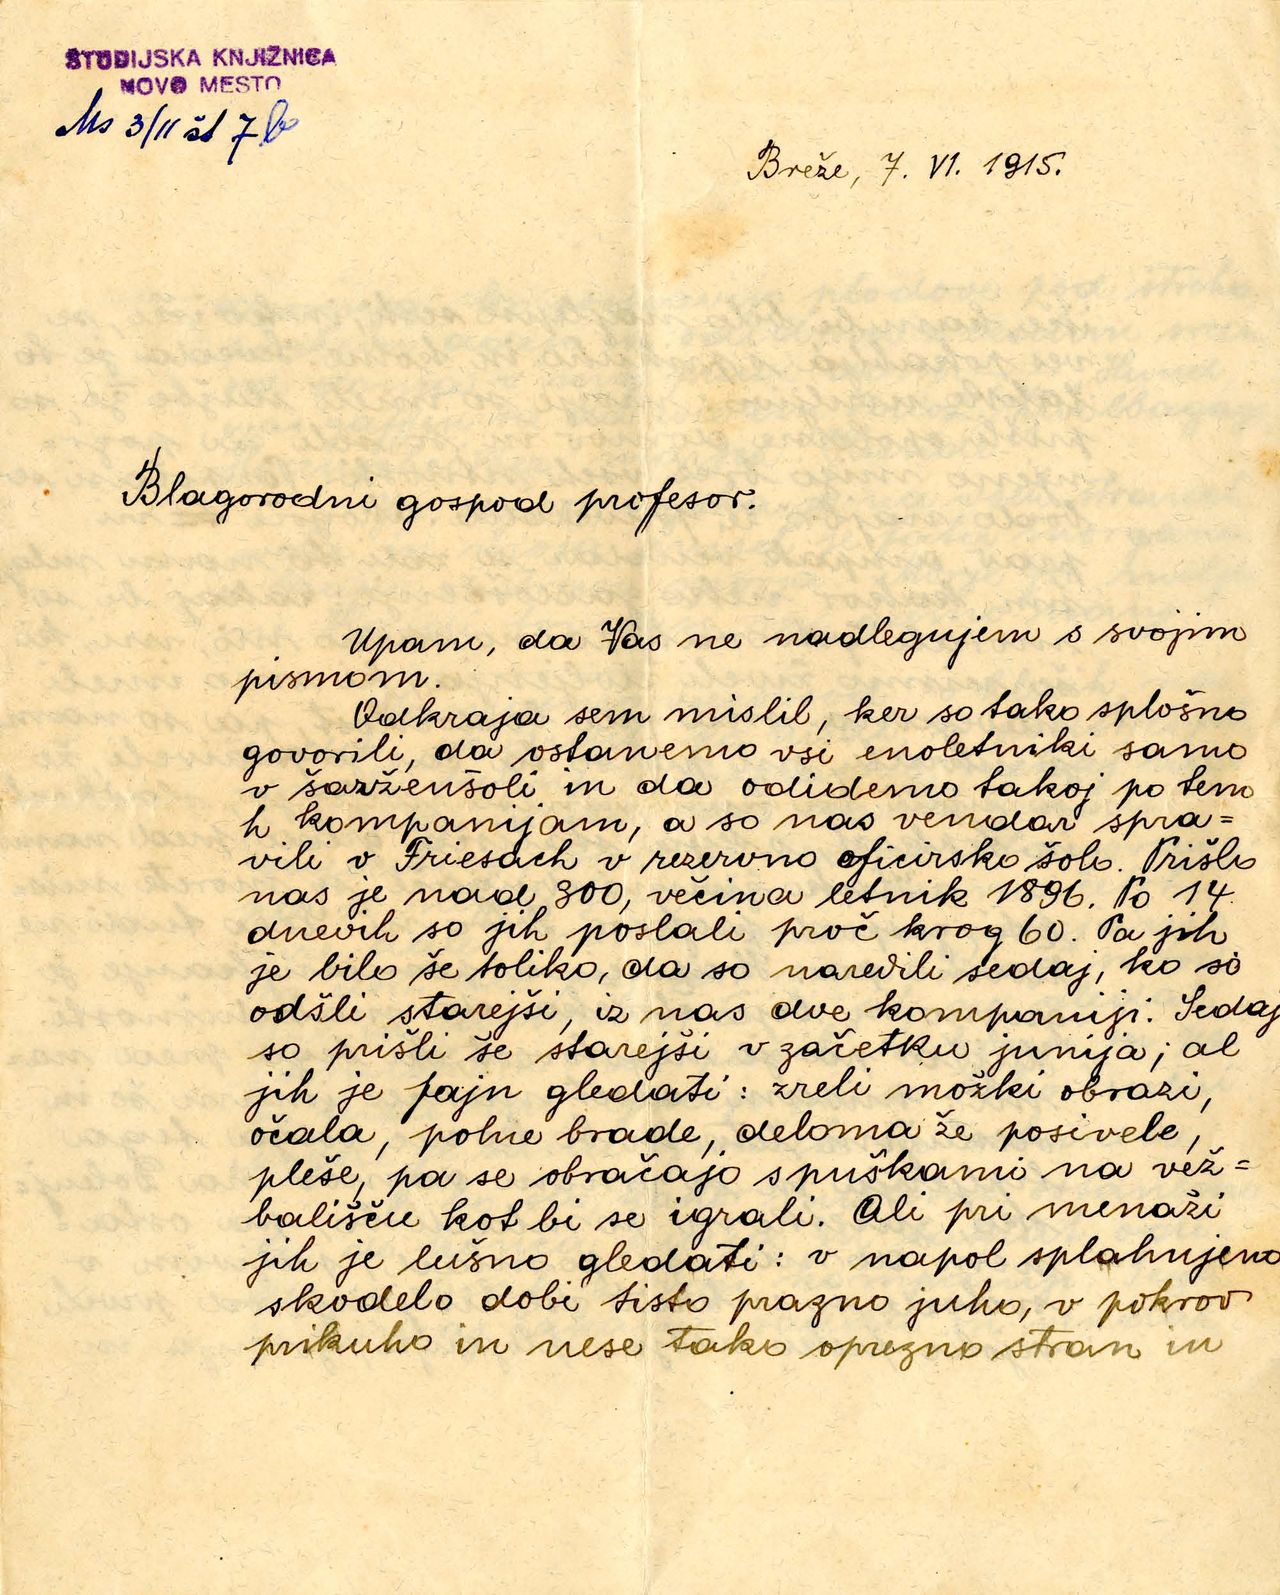 ŠTUDIJSKA KNJIŽNICA
NOVO MESTO
Ms 3/II št 7b
Breže, 7. VI. 1915.
Blagorodni gospod profesor.
Upam, da Vas ne nadlegujem s svojim
pismom.
Odkraja sem mislil, ker so tako splošno
govorili, da ostanemo vsi enoletniki samo
v šarženšoli in da odidemo takoj po tem
h kompanijam, a so nas vendar spra=
vili v Friesach v rezervno oficirsko šolo. Prišlo
nas je nad 300, večina letnik 1896. Po 14
dnevih so jih poslali proč krog 60. Pa jih
je bilo še toliko, da so naredili sedaj, ko so
odšli starejši, iz nas dve kompaniji. Sedaj
so prišli še starejši v začetku junija; al
jih je fajn gledati: zreli možki obrazi,
očala, polne brade, deloma že posivele,
pleše, pa se obračajo s puškami na vež=
bališču kot bi se igrali. Ali pri menaži
jih je lušno gledati: v napol splahnjeno
skodelo dobi tisto prazno juho, v pokrov
prikuho in nese tako oprezno stran in